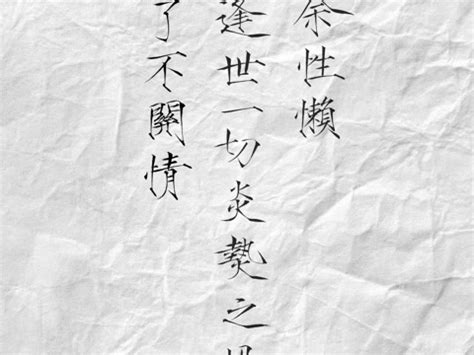 余性懶
逢世一切炎熱之
了不關情